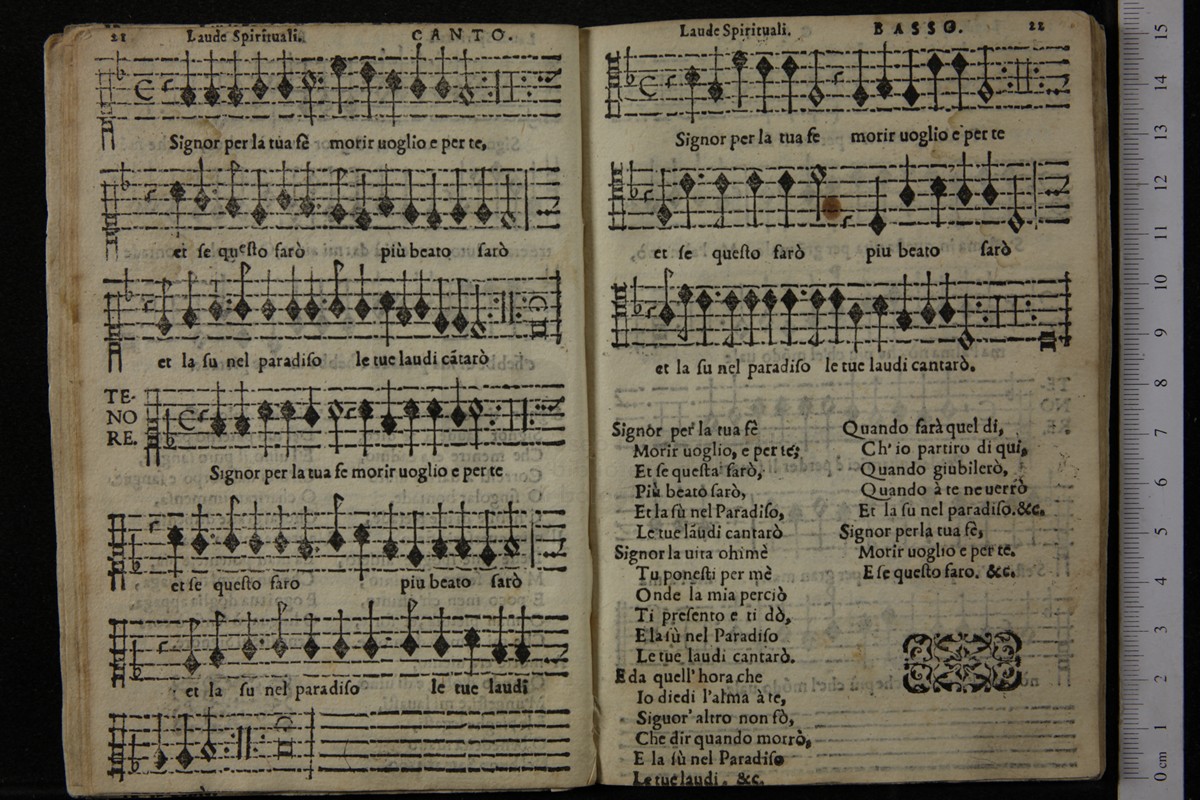 21 Laude Spirituali. CANTO.
Signor per la tua fè morir uoglio e per te,
et se questo farò più beato sarò
et la su nel paradiso le tue laudi cãtarò
TE-
NO
RE.
Signor per la tua fe morir uoglio e per te
et se questo faro piu beato sarò
et la su nel paradiso le tue laudi
Laude Spirituali. BASSO. 22
Signor per la tua fe morir uoglio e per te
et se questo farò piu beato sarò
et la su nel paradiso le tue laudi cantarò.
Signor per la tua fè
Morir uoglio, e per te;
Et se questa farò,
Più beato sarò,
Et la sù nel Paradiso,
Le tue laudi cantarò
Signor la uita ohimè
Tu ponesti per mè
Onde la mia perciò
Ti presento e ti dò,
E la sù nel Paradiso
Le tue laudi cantarò.
E da quell'hora che
Io diedi l'alma à te,
Siguor' altro non sò,
Che dir quando morrò,
E la sù nel Paradiso
Le tue laudi. &c.
Quando farà quel di,
Ch' io partiro di qui,
Quando giubilerò,
Quando à te ne uerrò
Et la su nel paradiso. &c.
Signor per la tua fè,
Morir uoglio e per te.
E se questo faro. &c.
0 cm 1 2 3 4 5 6 7 8 9 10 11 12 13 14 15